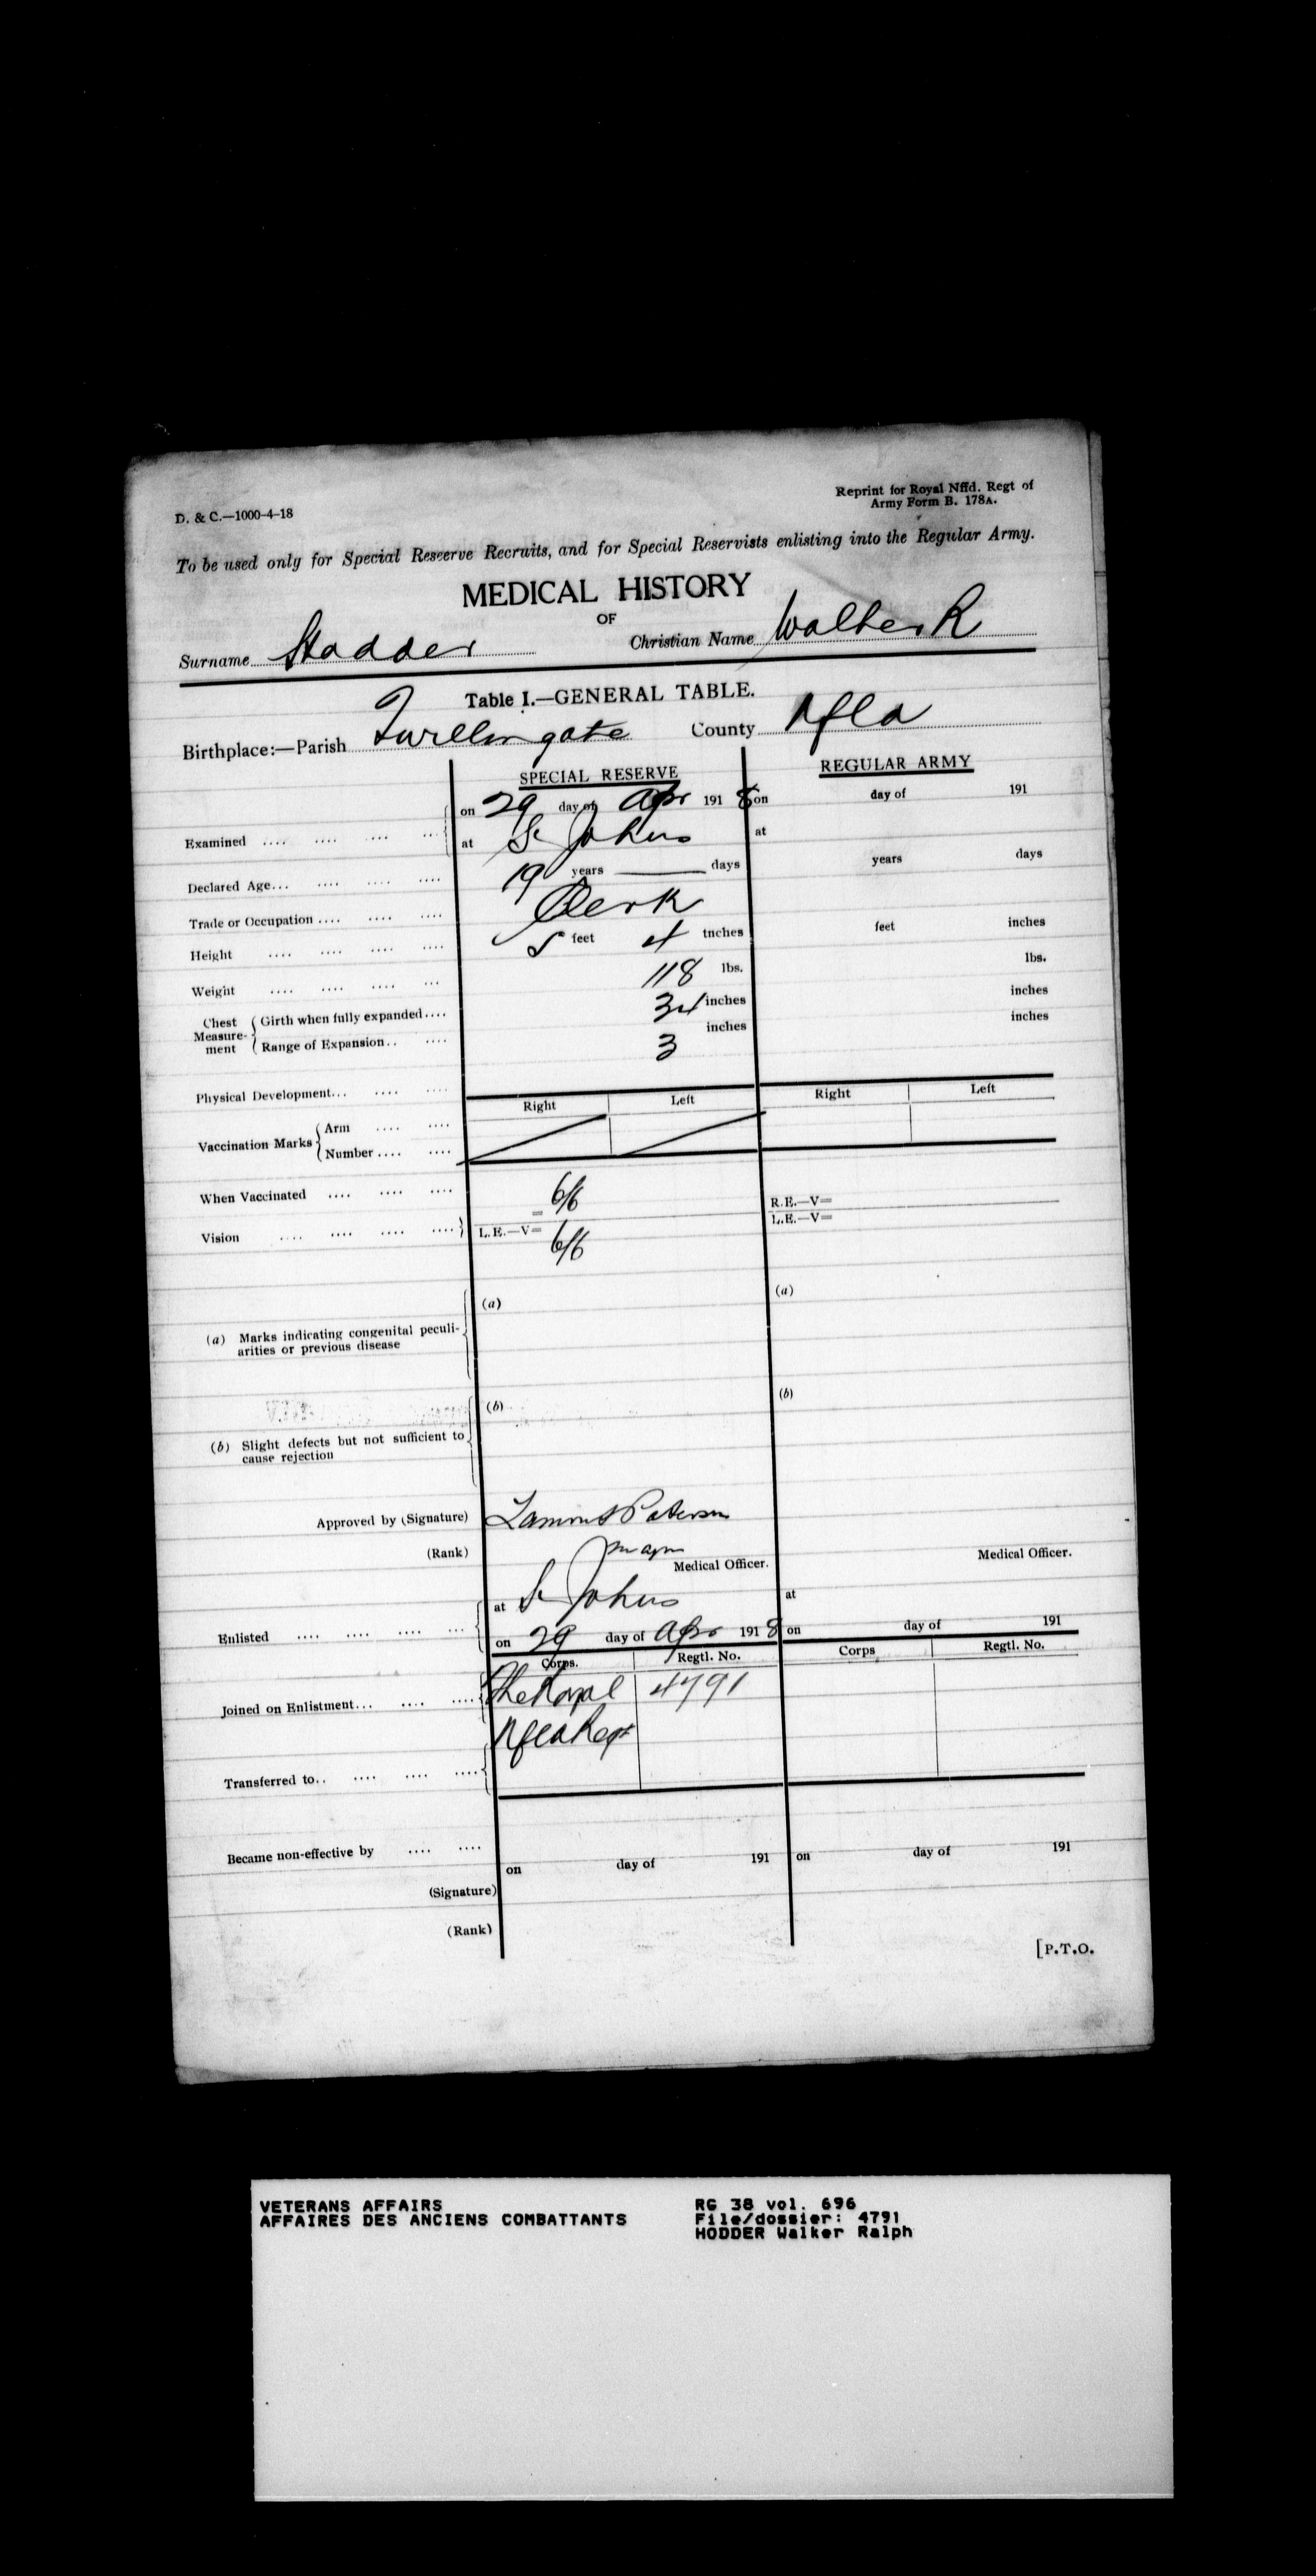 D. & C.—1000-4-18
Reprint for Royal Nffd. Regt of
Army Form B. 178A.
To be used only for Special Reserve Recruits, and for Special Reservists enlisting into the Regular Army.
MEDICAL HISTORY
OF
Surname Hodder Christian Name Walter R
Table I.—GENERAL TABLE.
Birthplace:—Parish Twillingate County Nfld
SPECIAL RESERVE REGULAR ARMY
Examined .... .... .... .... on 29 day of Apr 191 8 on day of 191
at St Johns at
Declared Age... .... .... .... 19 years —— days years days
Trade or Occupation .... .... .... Clerk
Height .... .... .... .... 5 feet 4 inches feet inches
Weight .... .... .... .... 118 lbs. lbs.
Chest Measurement Girth when fully expanded .... 34 inches inches
Range of Expansion .. .... 3 inches inches
Physical Development... .... ....
Right Left Right Left
Vaccination Marks Arm .... ....
Number .... ....
When Vaccinated .... .... ....
Vision .... .... .... .... = 6/6 R.E.—V=
L.E.—V= 6/6 L.E.—V=
(a) Marks indicating congenital peculi- (a) (a)
arities or previous disease
(b) Slight defects but not sufficient to (b) (b)
cause rejection
Approved by (Signature) Lamont Paterson
(Rank) Major
Medical Officer. Medical Officer.
Enlisted .... .... .... .... at St Johns at
on 29 day of Apr 191 8 on day of 191
Corps. Regtl. No. Corps Regtl. No.
Joined on Enlistment... .... .... The Royal 4791
Nfld Regt
Transferred to.. .... .... ....
Became non-effective by .... ....
on day of 191 on day of 191
(Signature)
(Rank)
[P.T.O.
VETERANS AFFAIRS
AFFAIRES DES ANCIENS COMBATTANTS
RG 38 vol. 696
File/dossier: 4791
HODDER Walker Ralph